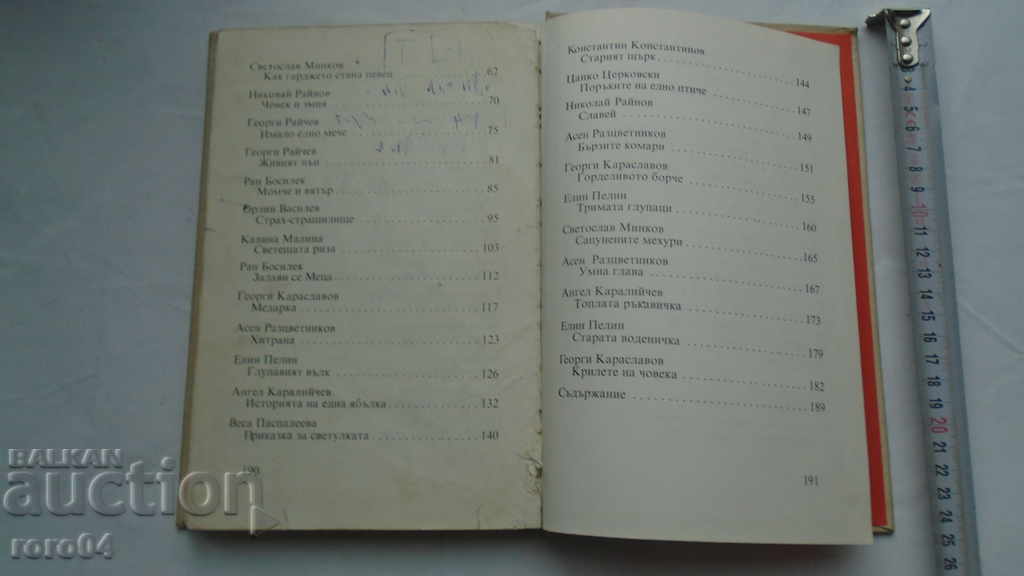 Светослав Минков
Как гарджето стана певец 62
Николай Райнов
Човек и змия 70
Георги Райчев
Имало едно мече 75
Георги Райчев
Живият пън 81
Ран Босилек
Момче и вятър 85
Орлин Василев
Страх-страшилище 95
Калина Малина
Светещата риза 103
Ран Босилек
Задаян се Меца 112
Георги Караславов
Медарка 117
Асен Разцветников
Хитрана 123
Елин Пелин
Глупавият вълк 126
Ангел Каралийчев
Историята на една ябълка 132
Веса Паспалеева
Приказка за светулката 140
190
Константин Константинов
Старият щърк 144
Цанко Церковски
Поръките на едно птиче 147
Николай Райнов
Славей 149
Асен Разцветников
Бързите комари 151
Георги Караславов
Горделивото борче 155
Елин Пелин
Тримата глупаци 160
Светослав Минков
Сапунените мехури 165
Асен Разцветников
Умна глава 167
Ангел Каралийчев
Топлата ръкавичка 173
Елин Пелин
Старата воденичка 179
Георги Караславов
Крилете на човека 182
Съдържание 189
191
4
5
6
7
8
9
10
11
12
13
14
15
16
17
18
19
20
21
22
23
24
25
26
BALKAN
auction
roro04